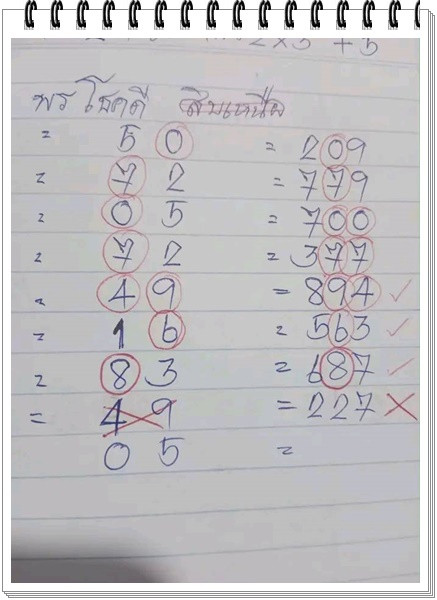 2x5 + 5
พร โชคดี สิบเหนือ
= 50 = 209
= 72 = 779
= 05 = 700
= 72 = 377
= 49 = 894 ✓
= 16 = 563 ✓
= 83 = 687 ✓
= 49 = 227 ✗
05 =